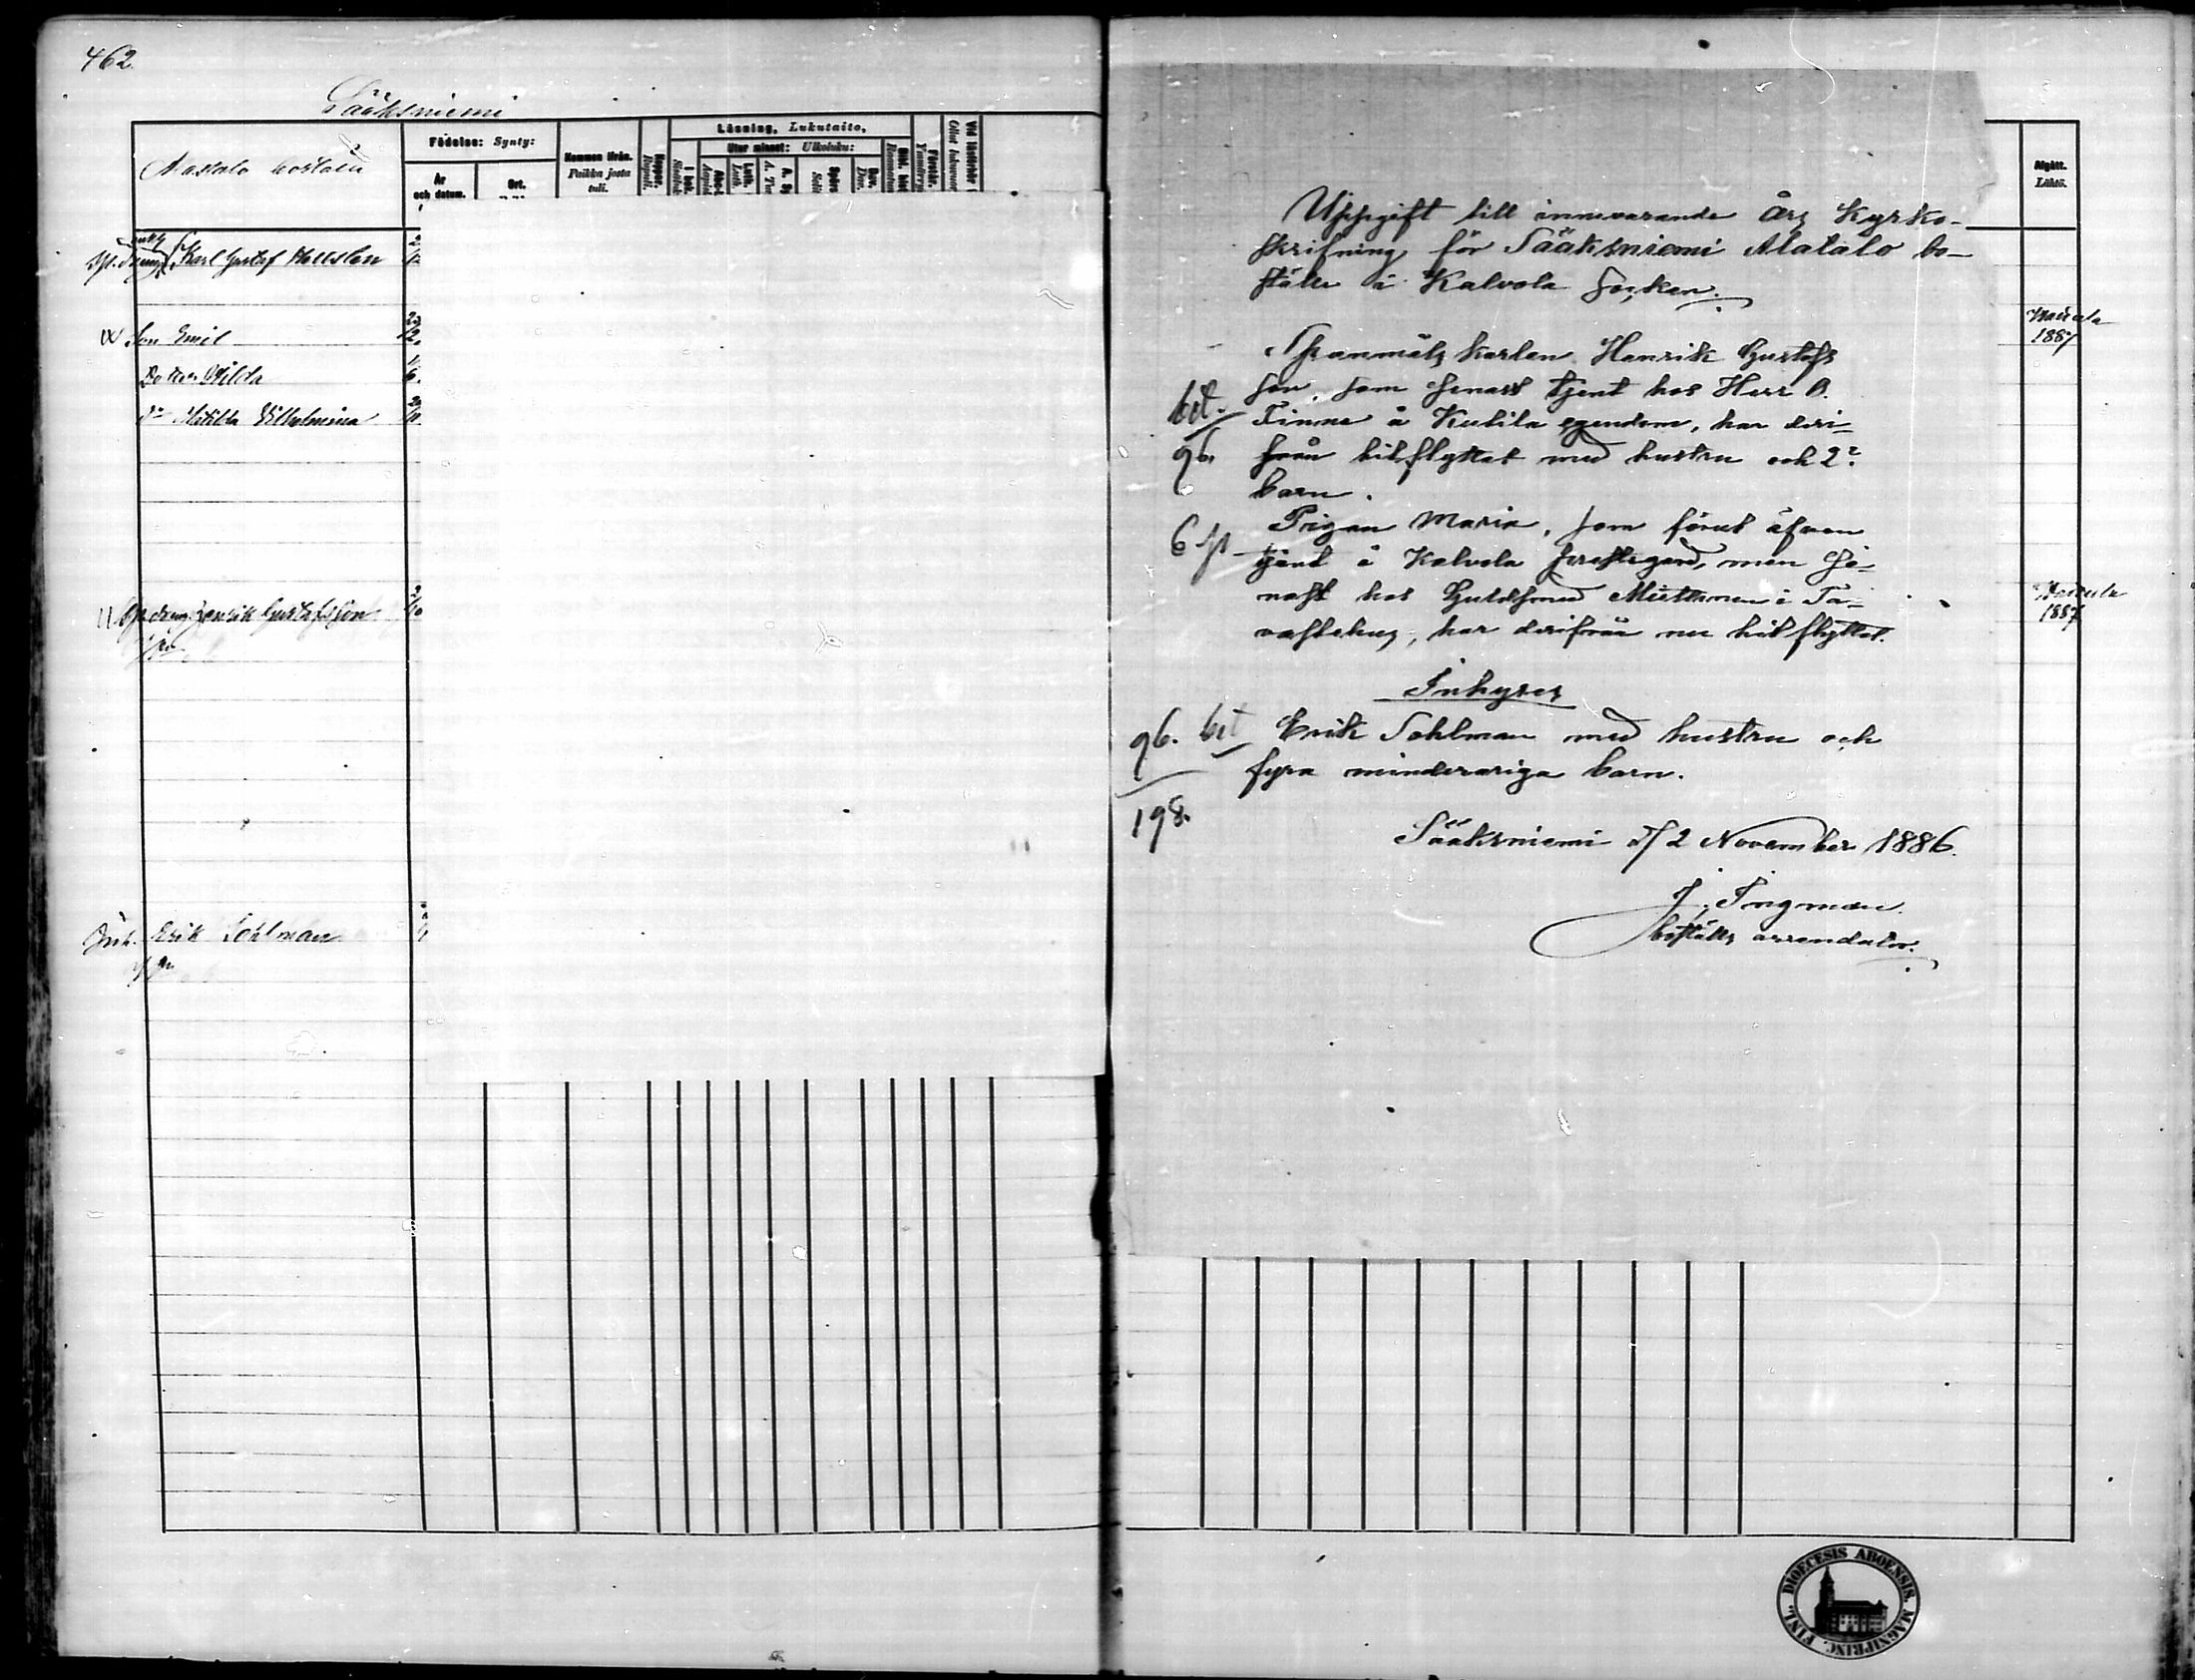 462.
Sääksniemi
Födelse: Synty:
År
och datum.
Ort.
Kommen ifrån.
Paikka josta
tuli.
Läsning, Lukutaito,
Utur minnet: Ulkoluku:
Karl Gustaf
Son Emil
Hilda
Do Matilda Vilhelmina
Henrik Gustafsson
Inh. Erik Sohlman
Uppgift till innevarande Års Kyrko-
skrifning för Sääksniemi Alatalo bo-
ställe i Kalvola Socken.
Spanmåls karlen Henrik Gustafs
son, som senast tjent hos Herr O.
bet. Finne å Kutila egendom, har deri-
96. från hitflyttat med hustru och 2ne
barn.
Pigan Maria, som förut äfven
tjent å Kalvola prestgård, men se-
nast hos Guldsmed Miettinen i Ta-
vastehus, har derifrån nu hitflyttat.
Inhyses
96. bet Erik Sohlman med hustru och
fyra minderariga barn.
198.
Sääksniemi d/ 2 November 1886.
J. Ingman.
boställs arrendator.
Afgått.
Lähtö.
1887
1887
FINL. DIOECESIS ABOENSIS MAGNIPRINC.